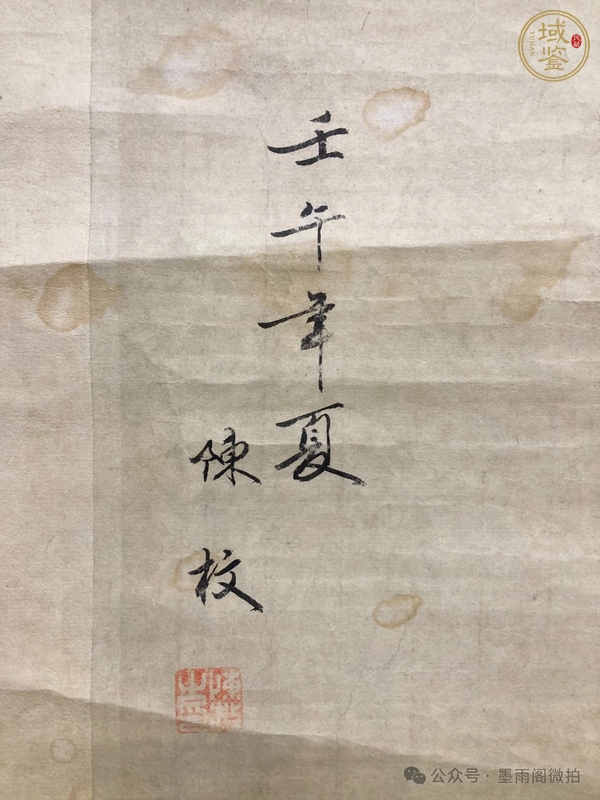 壬午年夏
陳枚
域鉴
YUJIAN
公众号·墨雨阁微拍